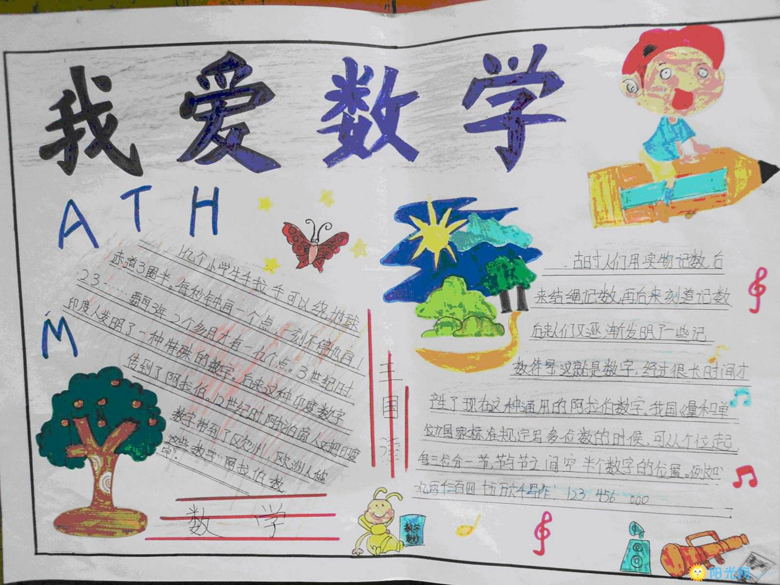 我爱数学
MATH
1亿个小学生手拉手可以绕地球
赤道3圈半。每秒钟画一个点,一刻不停地画1
2 3
印度人发明了一种特殊的数字,后来这种印度数字
传到了阿拉伯。12世纪时,阿拉伯商人又把印度
数字带到了欧洲,欧洲人就
数学
古时人们用实物记数,后
来结绳记数,再后来刻道记数
后来人们又逐渐发明了一些记
数符号,这就是数字,经过很长时间才
产生了现在这种通用的阿拉伯数字。我国《量和单
位》国家标准规定写多位数的时候,可以个位起
每三位分一节,节与节之间空半个数字的位置。例如
123 456 000
数学
阳光网